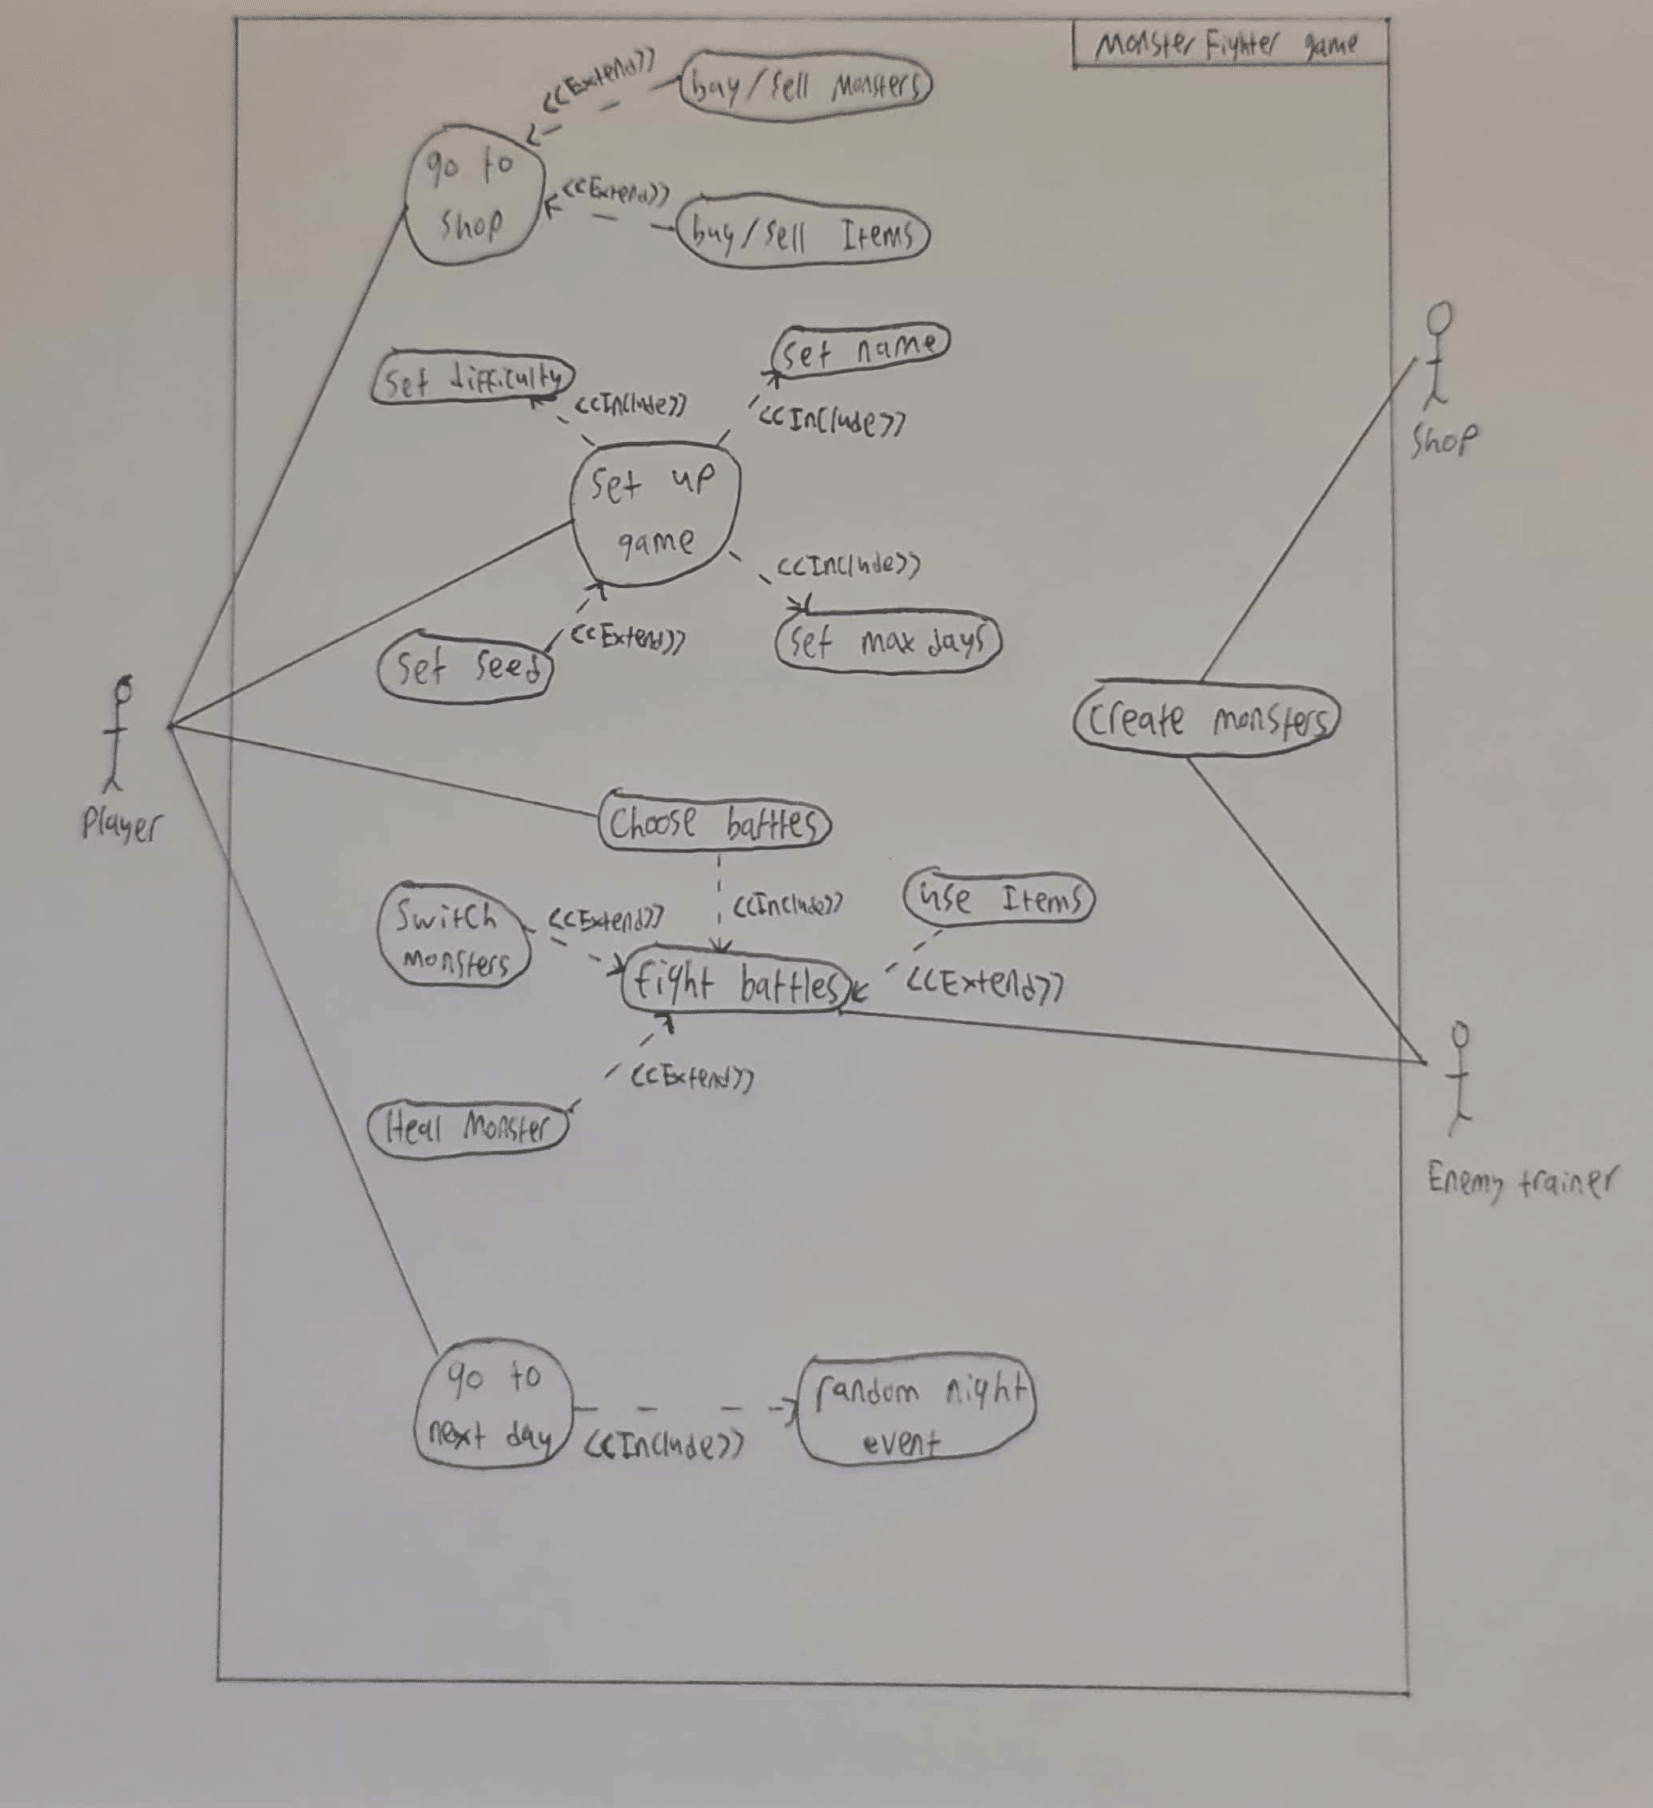 Monster Fighter game
<<Extend>>
buy/sell Monsters
go to
shop
<<Extend>>
buy/sell Items
set name
set difficulty
<<Include>>
<<Include>>
set up
game
<<Include>>
<<Extend>>
set seed
set max days
shop
create monsters
player
choose battles
<<Include>>
use Items
switch
monsters
<<Extend>>
fight battles
<<Extend>>
<<Extend>>
Heal Monster
Enemy trainer
go to
next day
<<Include>>
random night
event